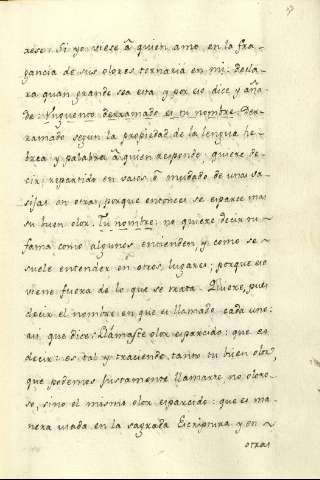 aesos. Si yo viese â quien amo, en la fra-
gancia de sus olores tornaría en mi: decla-
ra quan grande sea esta y por eso dice y aña-
de: Unguento derramado es tu nombre. Der-
ramado segun la propiedad de la lengua he-
brea y palabra â quien responde, quiere de-
cir, repartido en vasos, ô mudado de unas va-
sijas en otras, porque entonces se esparce mas
su buen olor. Tu nombre: no quiere decir tu
fama como algunos entienden, y como se
suele entender en otros lugares; porque eso
viene fuera de lo que se trata. Quiere, pues
decir el nombre en que es llamado cada uno:
asi que dice: Llamaste olor esparcido: que es
decir: es tal y trasciende tanto tu buen olor,
que podemos justamente llamarte, no oloro-
so, sino el mismo olor esparcido: que es ma-
nera usada en la sagrada Escriptura y en
otras